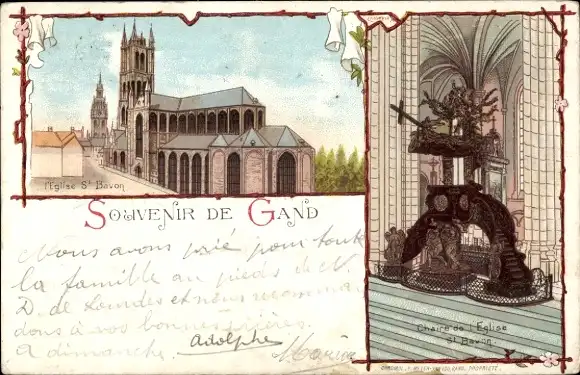 l'Eglise St Bavon
SOUVENIR DE GAND
Nous avons prié pour toute
la famille au pieds de N.
D. de Lourdes et nous recomman
dons à vos bonnes prières.
a dimanche. Adolphe
Marie
Chaire de l'Eglise
St Bavon
GAND, PROPRIÉTÉ